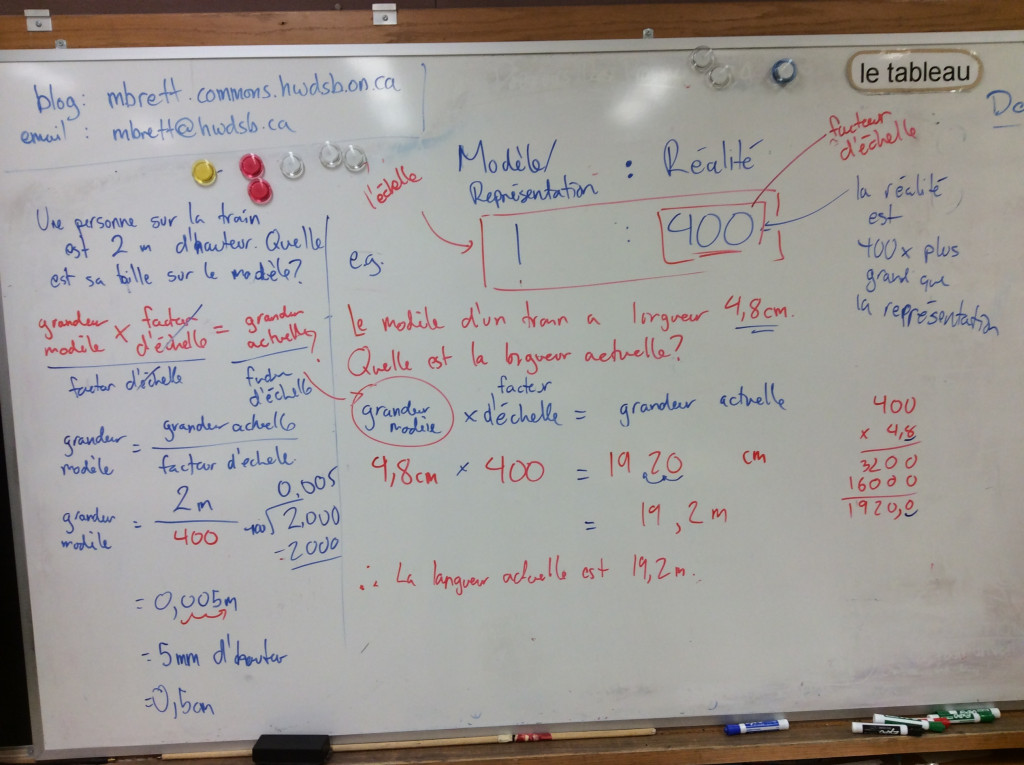 le tableau
blog: mbrett.commons.hwdsb.on.ca
email: mbrett@hwdsb.ca
De
Modèle/
Représentation
: Réalité
l'échelle
facteur
d'échelle
1 : 400
la réalité
est
400x plus
grand que
la représentation
e.g.
Le modèle d'un train a longueur 4,8cm.
Quelle est la longueur actuelle?
grandeur
modèle
x facteur
d'échelle = grandeur actuelle
4,8cm x 400 = 1920 cm
= 19,2m
∴ La langueur actuelle est 19,2m.
400
x 4,8
3200
16000
1920,0
Une personne sur la train
est 2 m d'hauteur. Quelle
est sa taille sur le modèle?
grandeur
modèle
x facteur
d'échelle
= grandeur
actuelle
facteur d'échelle
facteur
d'échelle
?
grandeur
modèle
= grandeur actuelle
facteur d'échele
grandeur
modèle
= 2m
400
0,005
400 2,000
=2000
= 0,005m
= 5mm d'hauteur
=0,5cm